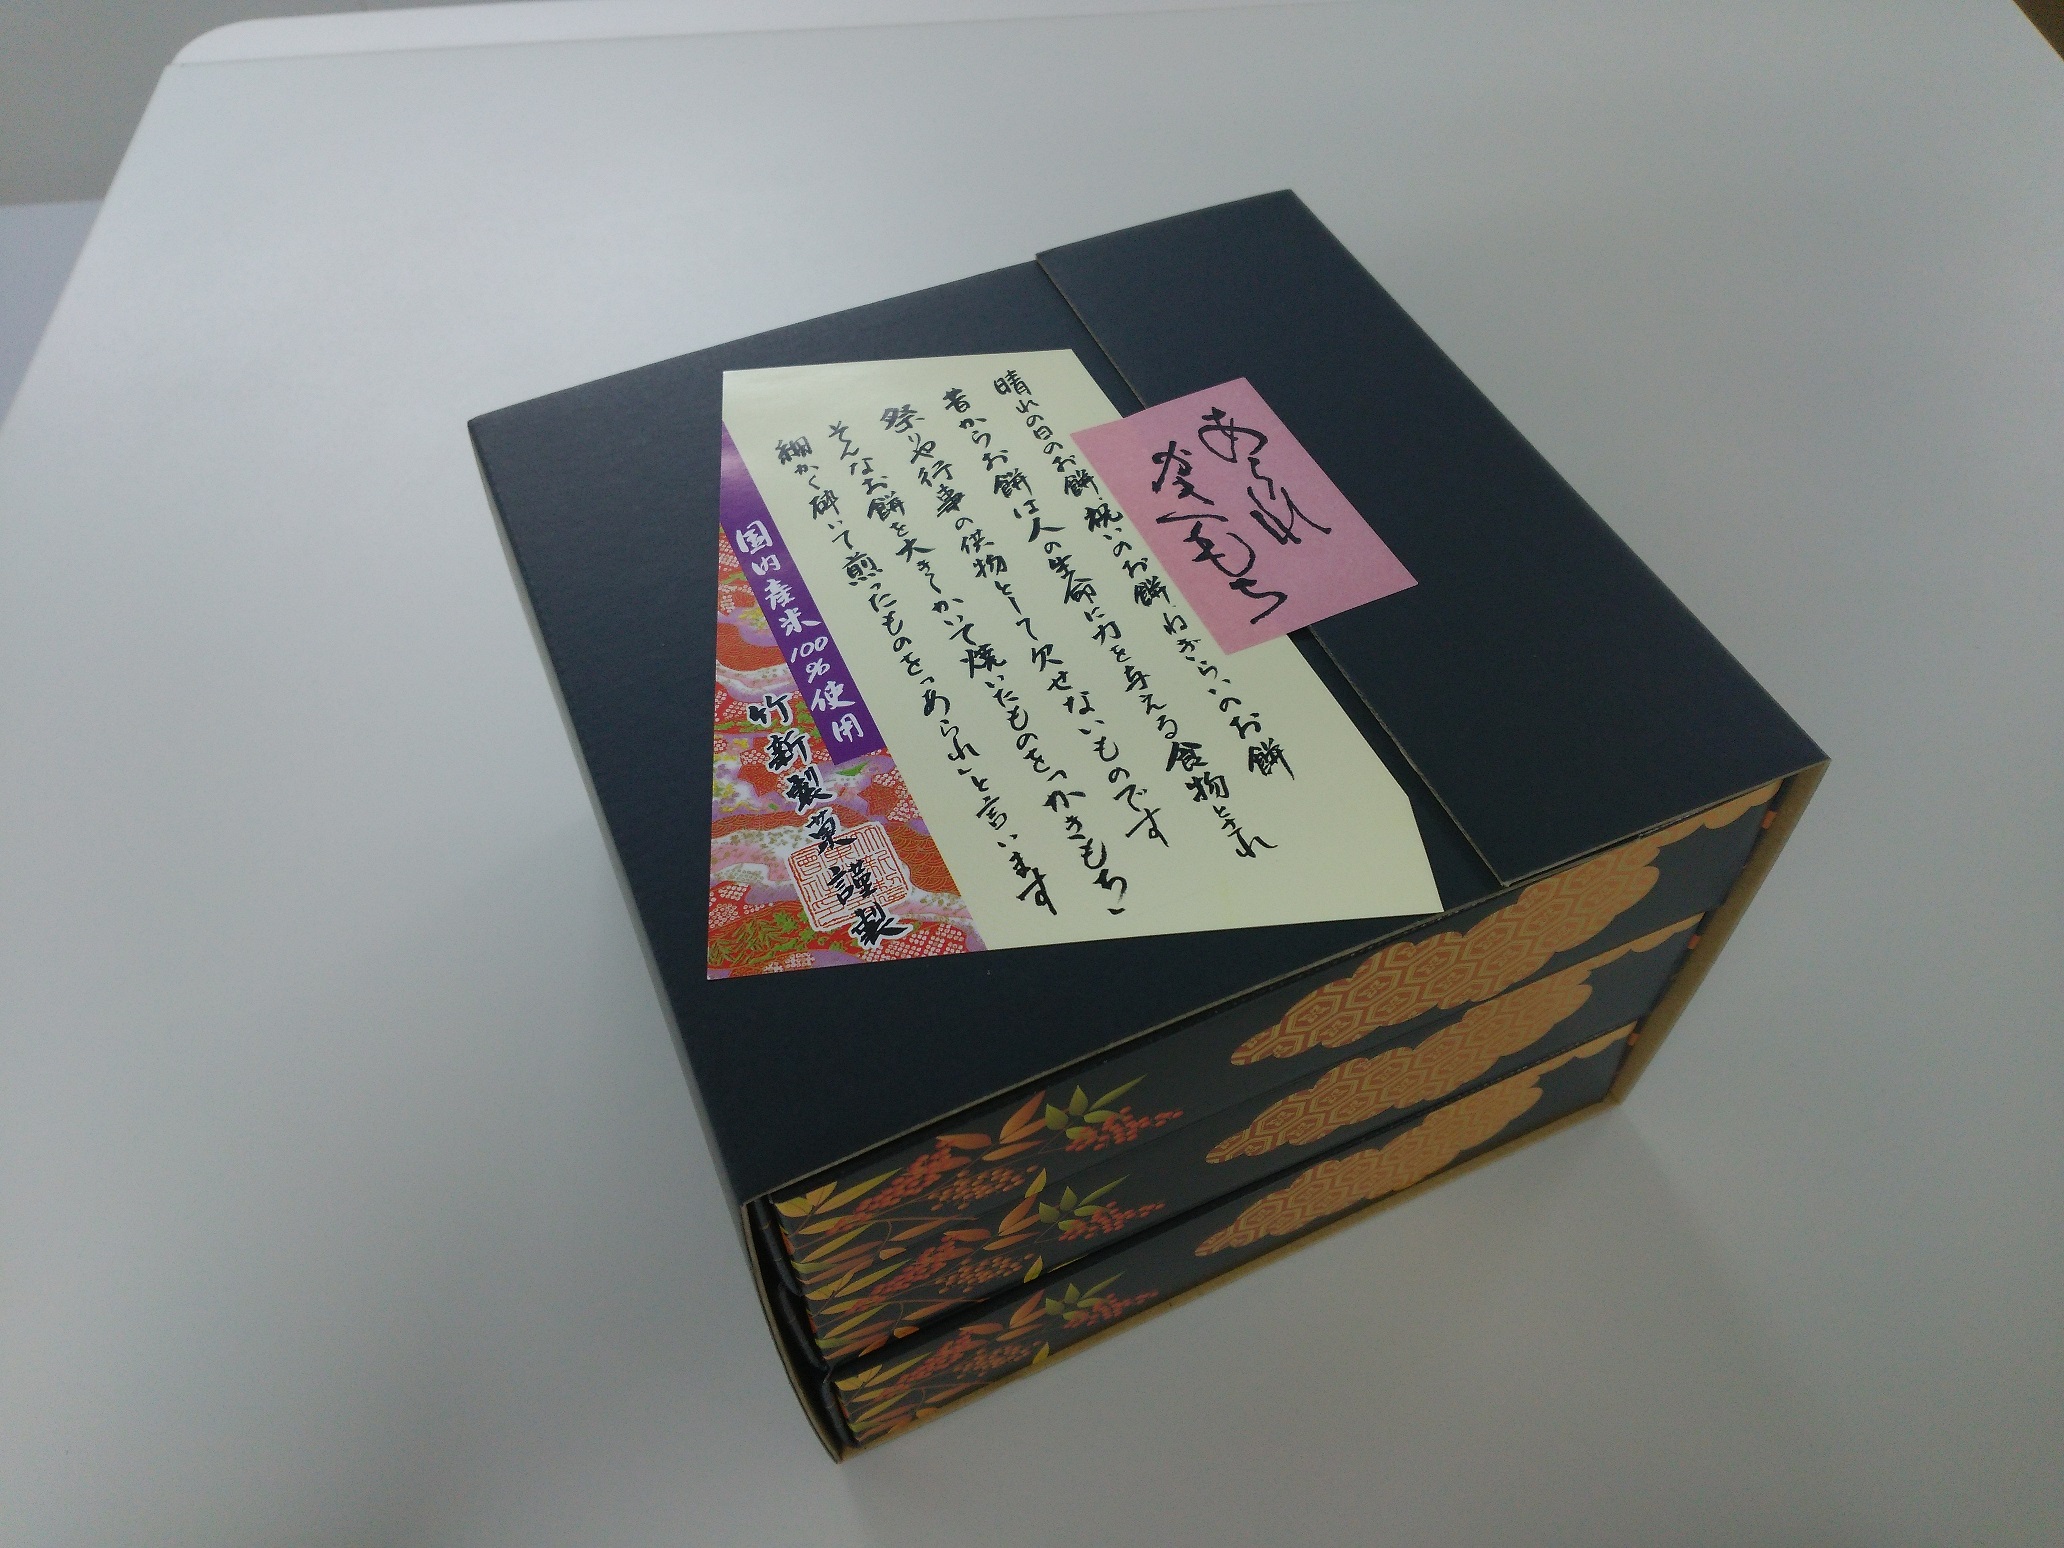 あられ
かきもち
晴れの日のお餅、祝いのお餅、ねぎらいのお餅
昔からお餅は人の生命に力を与える食物とされ
祭りや行事の供物として欠せないものです
そんなお餅を大きくかいて焼いたものを「かきもち」
細かく砕いて煎ったものを「あられ」と言います
国内産米100%使用
竹新製菓謹製